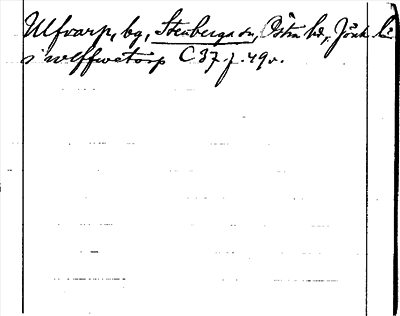 Ulfvarp, bg, Stenberga sn, Östra hd, Jönk. l.
i wlffwetorp C 37 f. 49 v.